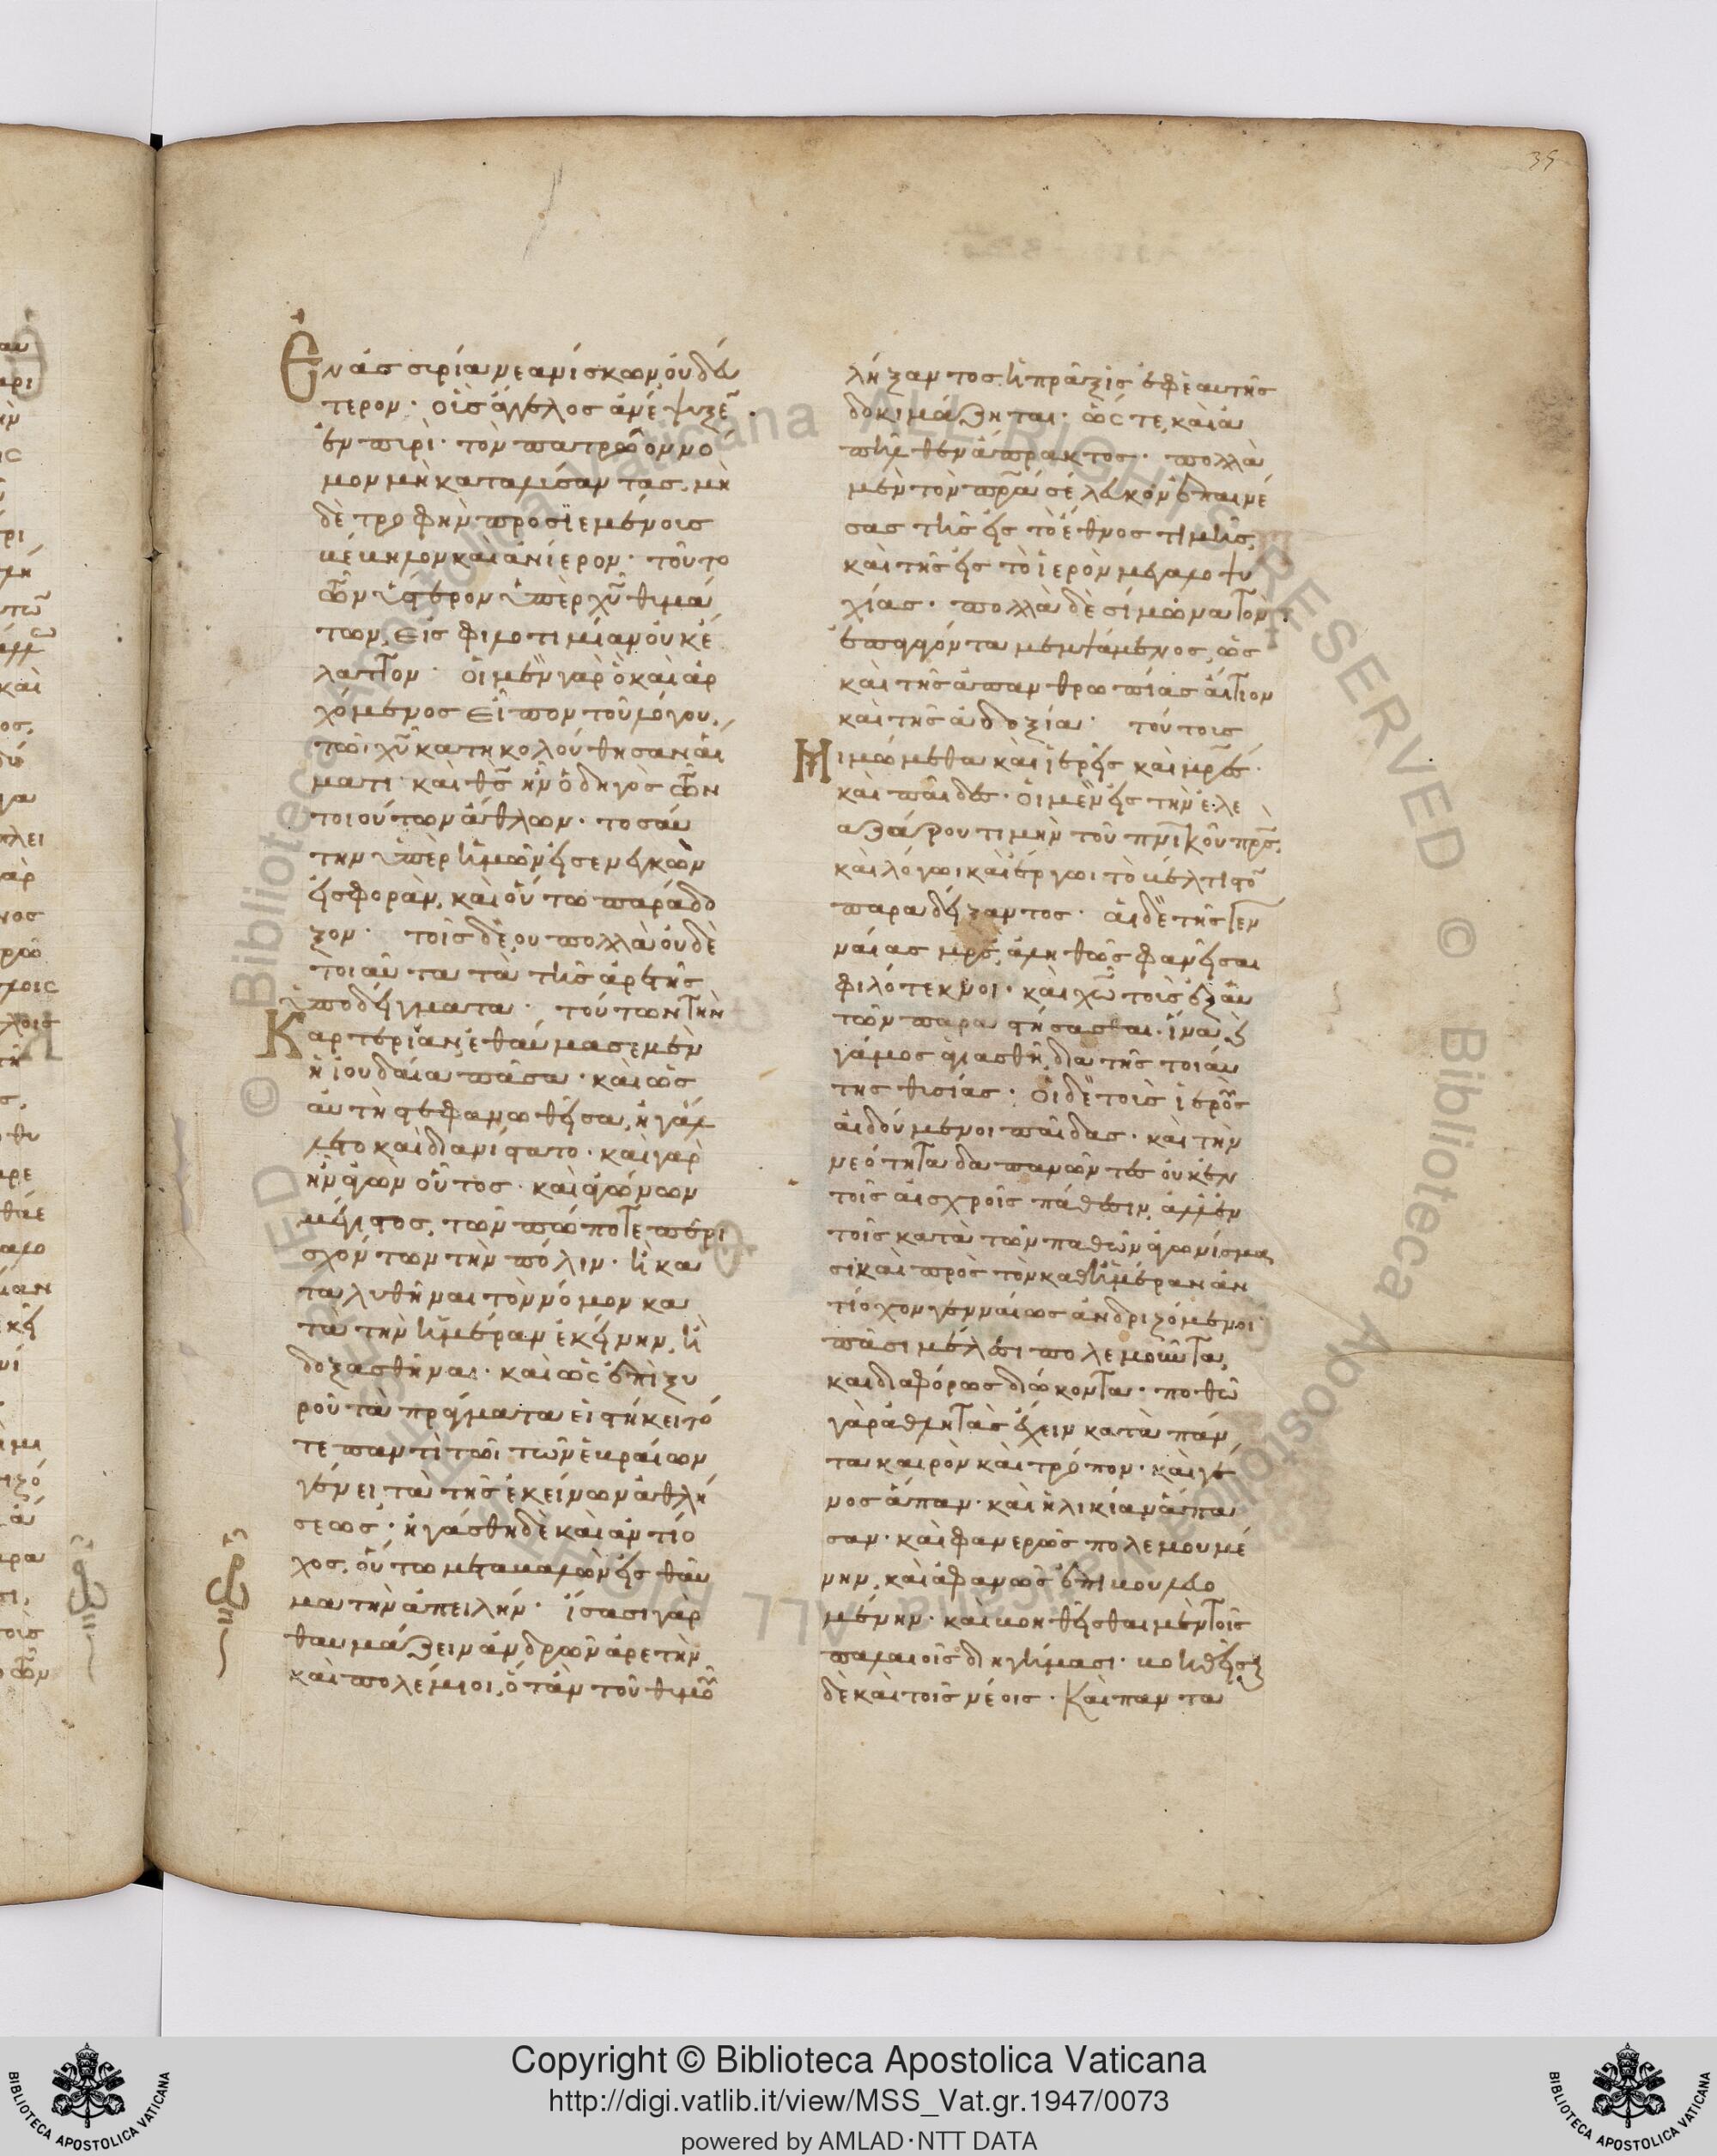 Ἐν ἀσσυρία νεανίσκων, οὐ δεύ
τερον· οὓς ἄγγελος ἀνέψυξε̅
ἐν πυρὶ· τὸν πατρῶον νό
μον μὴ καταλύσαντας, μη
δὲ τροφὴν προσϊεμένοις
βέβηλον καὶ ἀνίερον· τοῦτο
τῶν ὕστερον ὑπὲρ χ̅υ̅ θυμά
των, εἰς φιλοτιμίαν οὐκ ἔ
λαττον· οἱ μὲν γὰρ ὃ καὶ ἀρ
χόμενος εἶπον τοῦ λόγου,
τῶι χ̅υ̅ κατηκολούθησαν αἵ
ματι· καὶ θ̅ς̅ ἦν ὁδηγὸς τῶν
τοιούτων ἄθλων· τοσαύ
την ὑπὲρ ἡμῶν εἰσενεγκὼν
εἰσφορὰν, καὶ οὕτω παράδο
ξον· τοῖς δὲ, οὐ πολλὰ οὐδὲ
τοιαῦτα τὰ τῆς ἀρετῆς
ὑποδείγματα· τούτων τὴν
Καρτερίαν, ἐθαύμασε μὲν
ἡ ἰουδαία πᾶσα· καὶ ὡς
αὐτὴ στεφανωθεῖσα, ἠγάλ
λετο καὶ διανίστατο· καὶ γὰρ
ἦν ἀγὼν οὗτος· καὶ ἀγώνων
μέγιστος, τῶν πώποτε περι
σχόντων τὴν πόλιν· ἢ κα
ταλυθῆναι τὸν νόμον κα
τὰ τὴν ἡμέραν ἐκείνην, ἢ
δοξασθῆναι· καὶ ὡς ἐπὶ ξυ
ροῦ τὰ πράγματα εἱστήκει τό
τε παντὶ τῶι τῶν ἑβραίων
γένει, τὰ τῆς ἐκείνων ἀθλή
σεως· ἠγάσθη δὲ καὶ ἀντίο
χος, οὕτω μεταβαλὼν εἰς θαῦ
μα τὴν ἀπειλήν· ἴσασι γὰρ
θαυμάζειν ἀνδρῶν ἀρετὴν
καὶ πολέμιοι, ὅταν τοῦ θυμοῦ
λήξαντος, ἡ πρᾶξις ἐφ' ἑαυτῆς
δοκιμάζηται· ὥς τε καὶ ἀ
πῆλθεν ἄπρακτος· πολλὰ
μὲν τὸν π̅ρ̅α̅ σέλευκον ἐπαινέ
σας τῆς εἰς τὸ ἔθνος τιμῆς,
καὶ τῆς εἰς τὸ ἱερὸν μεγαλοψυ
χίας· πολλὰ δὲ σίμωνα τὸν
μεμψάμενος, ὡς
καὶ τῆς ἀπανθρωπίας αἴτιον
καὶ τῆς ἀδοξίας· τούτοις
Μιμώμεθα καὶ ἱερεῖς καὶ μ̅ρ̅ες·
καὶ παῖδες· οἱ μὲν εἰς τὴν ἐλε
αζάρου τιμὴν τοῦ πνικοῦ π̅ρ̅ς̅,
καὶ λόγωι καὶ ἔργωι τὸ βέλτιστο̅
παραδείξαντος· αἱ δὲ τῆς γεν
ναίας μ̅ρ̅ς̅, ἀληθῶς φανεῖσαι
φιλότεκνοι· καὶ χ̅ω̅ τοὺς ἐξ αὐ
τῶν παραστήσασαι· ἵνα
γάμος ἁγιασθῆ, διὰ τῆς τοιαύ
της θυσίας· οἱ δὲ τοὺς ἱεροὺς
αἰδούμενοι παῖδας· καὶ τὴν
νεότητα δαπανῶντες οὐκ ἐν
τοῖς αἰσχροῖς πάθεσιν, ἀλλ' ἐν
τοῖς κατὰ τῶν παθῶν ἀγωνίσμα
σι καὶ πρὸς τὸν καθ' ἡμέραν ἀν
τίοχον γενναίως ἀνδριζόμενοι·
πᾶσι μέλεσι πολεμοῦντα,
καὶ διαφόρως διώκοντα· ποθῶ
γὰρ ἀθλητὰς ἔχειν κατὰ πάν
τα καιρὸν καὶ τρόπον· καὶ γέ
νος ἅπαν· καὶ ἡλικίαν ἅπα
σαν· καὶ φανερῶς πολεμουμέ
νην, καὶ ἀφανῶς ἐπιβουλευο
μένην· καὶ βοηθεῖσθαι μὲν τοῖς
παλαιοῖς διηγήμασι· βοηθεῖσθ
δὲ καὶ τοῖς νέοις· Καὶ παντα
Copyright © Biblioteca Apostolica Vaticana
http://digi.vatlib.it/view/MSS_Vat.gr.1947/0073
powered by AMLAD·NTT DATA